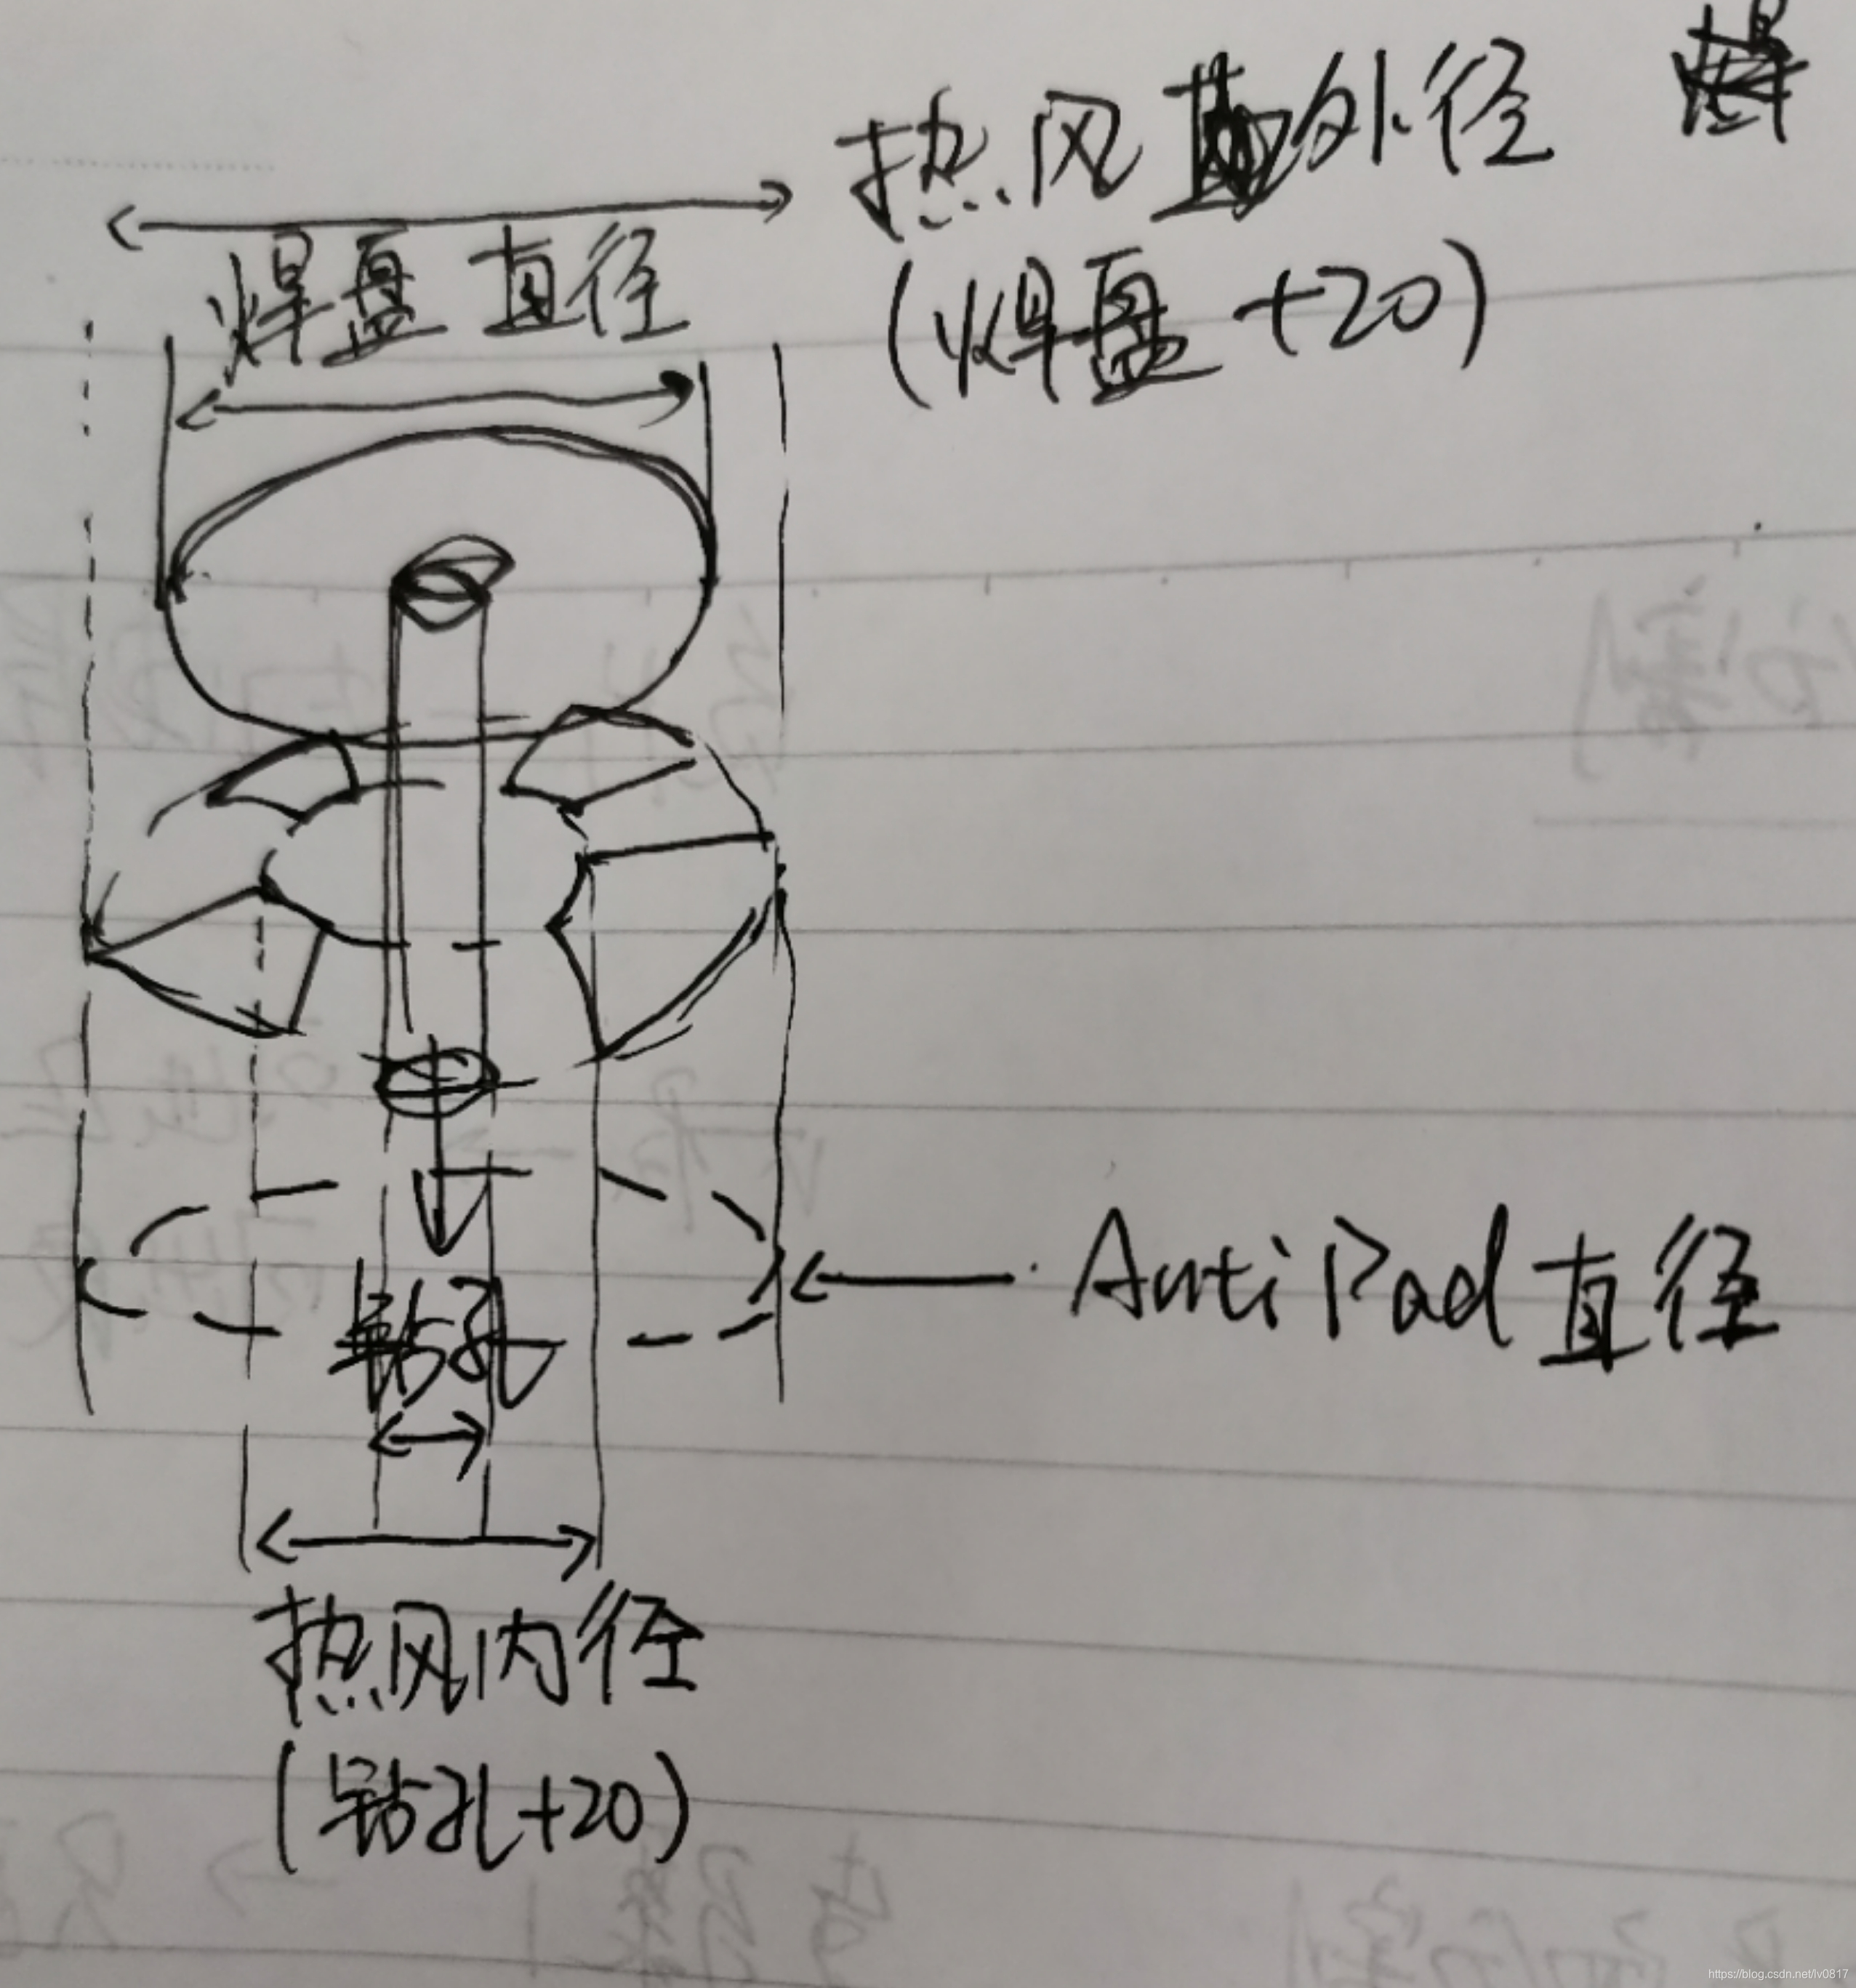 热风外径
(焊盘+20)
焊盘直径
AntiPad直径
钻孔
热风内径
(钻孔+20)
https://blog.csdn.net/lv0817